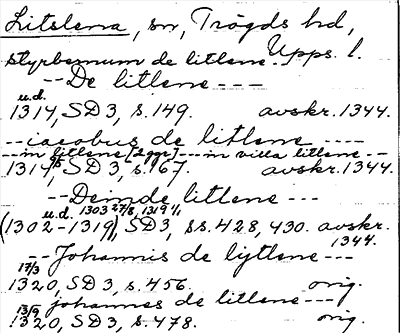 Litslena, sn, Trögds hd,
Upps. l.
styrbernum de litlene.
-- De litlene ---
u.d.
1314, SD3, s. 149. avskr. 1344.
-- iacobus de litlene ----
-- in litlene [2 ggr] --- in villa litlene --
1314, SD3, s. 167. avskr. 1344.
-- Deinde litlene ---
u.d. 1303 27/8, 1319 1/1
(1302-1319), SD3, ss. 428, 430. avskr.
1344.
-- Johannis de lijtlene ---
17/3
1320, SD3, s. 456. orig.
johannes de litlene ---
13/9
1320, SD3, s. 478. orig.